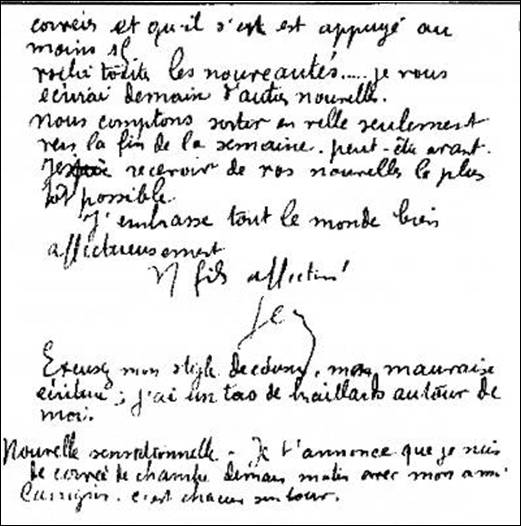 corvées et qu'il s'est est appuyé au
moins 15
voilà toutes les nouveautés..... je vous
écrirai demain d'autres nouvelles.
Nous comptons sortir en ville seulement
vers la fin de la semaine. peut-être avant.
recevoir de vos nouvelles le plus
tôt possible.
J'embrasse tout le monde bien
affectueusement
Vt fils affectioné

Excusez mon style décousu, mon mauvaise
écriture ; j'ai un tas de braillards autour de
moi.
Nouvelle sensationnelle - Je t'annonce que je suis
de corvée de chambre demain matin avec mon ami
c'est chacun son tour.